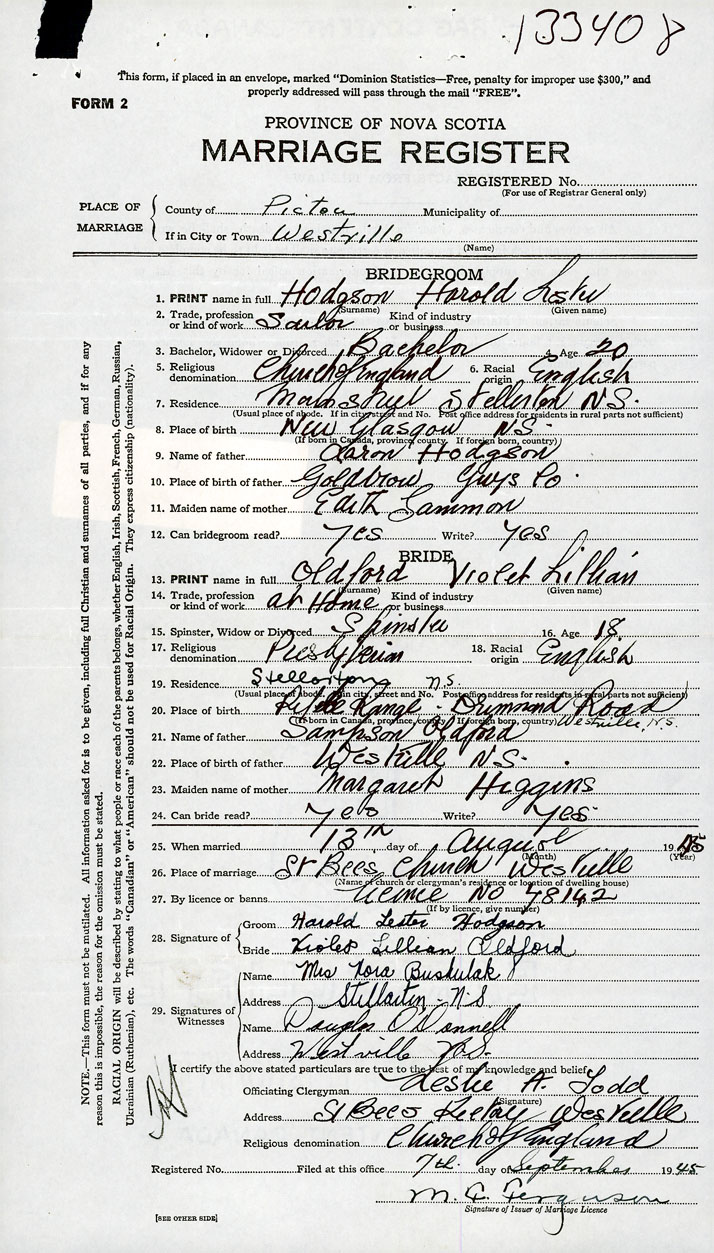 133408
This form, if placed in an envelope, marked "Dominion Statistics—Free, penalty for improper use $300," and
properly addressed will pass through the mail "FREE".
FORM 2
PROVINCE OF NOVA SCOTIA
MARRIAGE REGISTER
REGISTERED No.
(For use of Registrar General only)
PLACE OF MARRIAGE
County of Pictou Municipality of
If in City or Town Westville
(Name)
BRIDEGROOM
1. PRINT name in full Hodgson Harold
(Surname) (Given name)
2. Trade, profession or kind of work Sailor Kind of industry or business
3. Bachelor, Widower or Divorced Bachelor 4. Age 20
5. Religious denomination Church of England 6. Racial origin English
7. Residence Main street Stellarton N.S.
(Usual place of abode. If in city, street and No. Post office address for residents in rural parts not sufficient)
8. Place of birth New Glasgow N.S.
(If born in Canada, province, county. If foreign born, country)
9. Name of father Aaron Hodgson
10. Place of birth of father Goldbrow Guys Co.
11. Maiden name of mother Edith Sammon
12. Can bridegroom read? Yes Write? Yes
BRIDE
13. PRINT name in full Oldford Violet Lillian
(Surname) (Given name)
14. Trade, profession or kind of work at Home Kind of industry or business
15. Spinster, Widow or Divorced Spinster 16. Age 18.
17. Religious denomination Presbyterian 18. Racial origin English
19. Residence Stellarton N.S.
(Usual place of abode. If in city, street and No. Post office address for residents in rural parts not sufficient)
20. Place of birth Range - Drummond Road
(If born in Canada, province, county. If foreign born, country) Westville, N.S.
21. Name of father Sampson Oldford
22. Place of birth of father Westville N.S.
23. Maiden name of mother Margaret Higgins
24. Can bride read? Yes Write? Yes
25. When married 13th day of August 1945
(Month) (Year)
26. Place of marriage St Bees Church Westville
(Name of church or clergyman's residence or location of dwelling house)
27. By licence or banns Licence No 78142
(If by licence, give number)
28. Signature of
Groom Harold Lester Hodgson
Bride Violet Lillian Oldford
29. Signatures of Witnesses
Name Mrs Nora Bushulak
Address Stellarton - N.S.
Name Douglas O'Donnell
Address Westville N.S.
I certify the above stated particulars are true to the best of my knowledge and belief.
Officiating Clergyman Leslie A. Todd
(Signature)
Address St Bees Rectory Westville
Religious denomination Church of England
Registered No. Filed at this office 7th. day of September 1945
M. C. Ferguson
Signature of Issuer of Marriage Licence
[SEE OTHER SIDE]
NOTE.—This form must not be mutilated. All information asked for is to be given, including full Christian and surnames of all parties, and if for any
reason this is impossible, the reason for the omission must be stated.
RACIAL ORIGIN will be described by stating to what people or race each of the parents belongs, whether English, Irish, Scottish, French, German, Russian,
Ukrainian (Ruthenian), etc. The words "Canadian" or "American" should not be used for Racial Origin. They express citizenship (nationality).